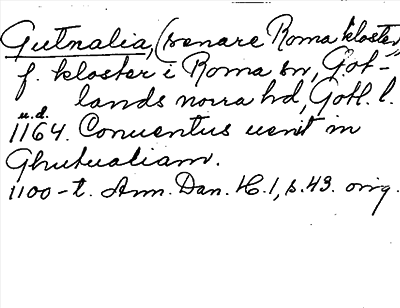 Gutnalia, (senare Roma kloster),
f. kloster i Roma sn, Got-
lands norra hd, Gotl. l.
u.d.
1164. Conuentus uenit in
Ghutualiam.
1100-t. Ann. Dan. 14:1, s. 43. orig.